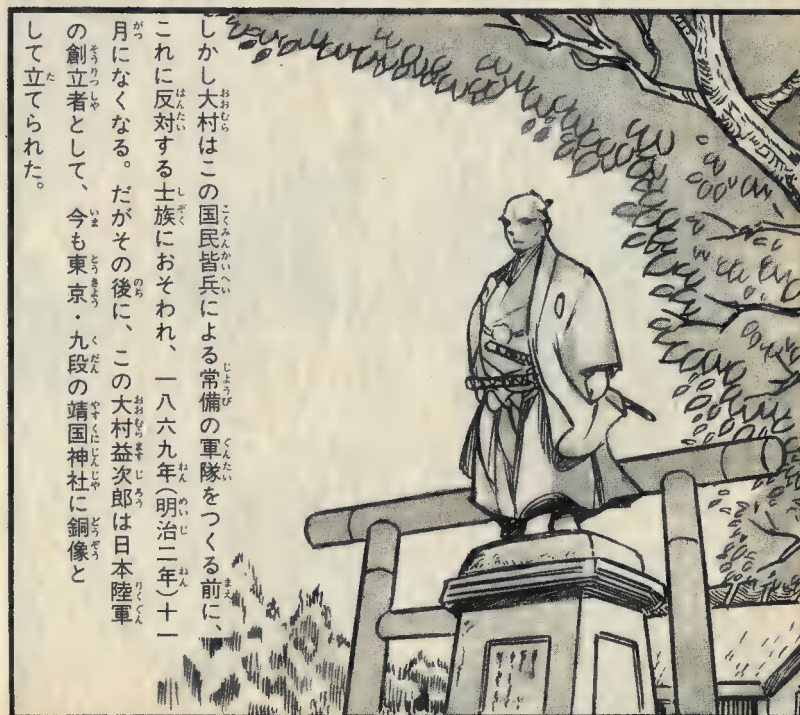 しかし大村はこの国民皆兵による常備の軍隊をつくる前に、
これに反対する士族におそわれ、一八六九年(明治二年)十一
月になくなる。だがその後に、この大村益次郎は日本陸軍
の創立者として、今も東京・九段の靖国神社に銅像と
して立てられた。